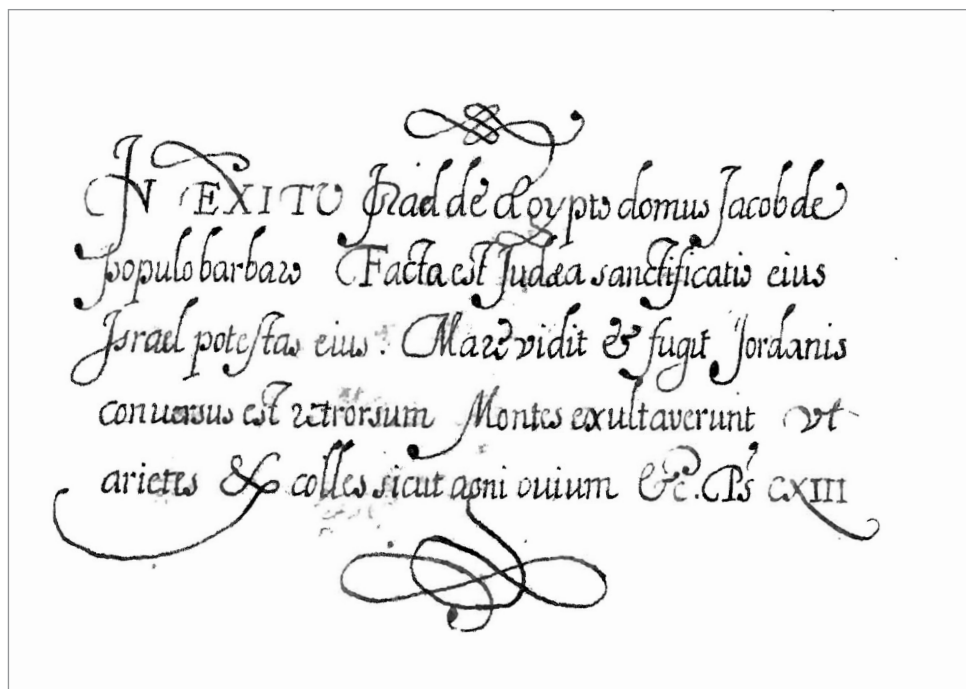 IN EXITU Israel de Ægypto domus Jacob de
populo barbaro Facta est Judæa sanctificatio eius
Israel potestas eius. Mare vidit & fugit Jordanis
conuersus est retrorsum Montes exultaverunt vt
arietes & colles sicut agni ouium &c. Ps CXIII